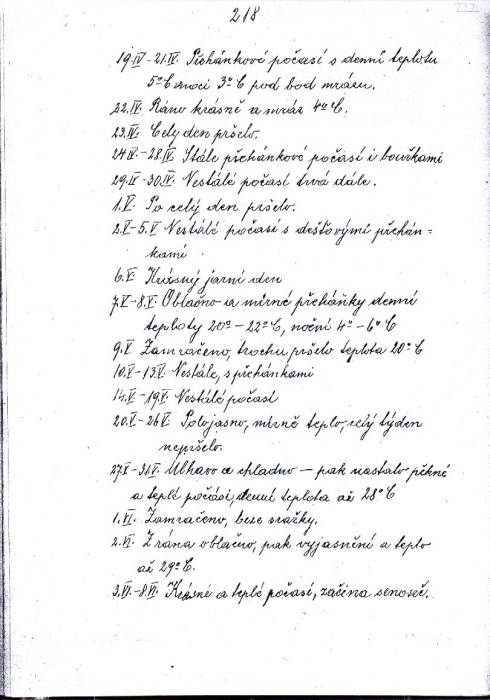 218
19.IV-21.IV. Přehánkové počasí s denní teplotu
5°C v noci 3°C pod bod mrazu.
22.IV. Ráno krásně a mráz 4°C.
23.IV. Celý den pršelo.
24.IV.-28.IV. Stále přehánkové počasí i bouřkami
29.IV-30.IV. Nestálé počasí trvá dále.
1.V. Po celý den pršelo.
2.V-5.V Nestálé počasí s dešťovými přehán=
kami.
6.V. Krásný jarní den
7.V-8.V. Oblačno a mírné přeháňky denní
teploty 20°-22°C, noční 4°-6°C
9.V Zamračeno, trochu pršelo teplota 20°C
10.V-13.V. Nestále, s přehánkami
14.V-19.V. Nestálé počasí
20.V-26.V. Polojasno, mírně teplo, celý týden
nepršelo.
27.V-31.V. Mlhavo a chladno - pak nastalo pěkné
a teplé počási, denní teplota až 28°C
1.VI. Zamračeno, beze srážky.
2.VI. Z rána oblačno, pak vyjasnění a teplo
až 29°C.
3.VI.-8.VI. Krásné a teplé počasí, začína senoseč.